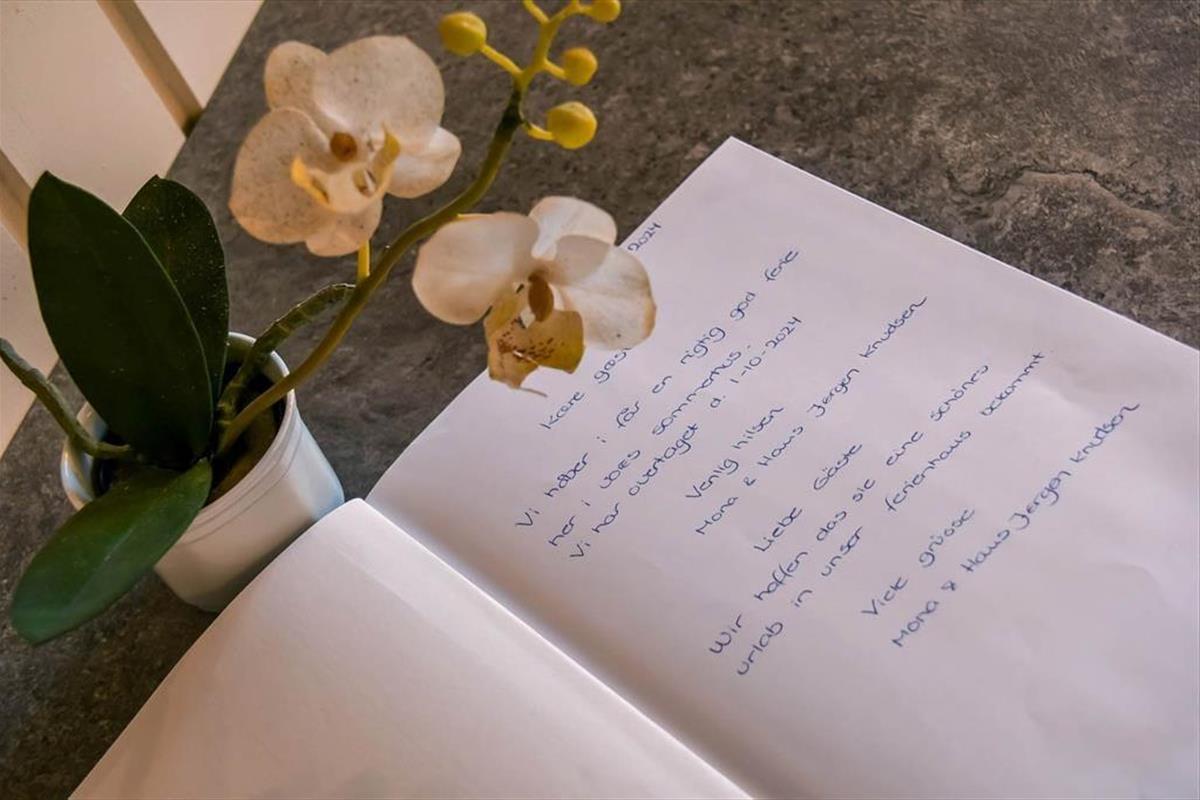 2024
Kære
Vi håber i får en rigtig god ferie
her i vores sommerhus.
Vi har overtaget d. 1-10-2024
Venlig hilsen
Mona & Hans Jørgen Knudsen
Liebe Gäste
Wir hoffen das sie eine schönes
urlab in unser ferienhaus bekommt
Viele grüsse
Mona & Hans Jørgen Knudsen